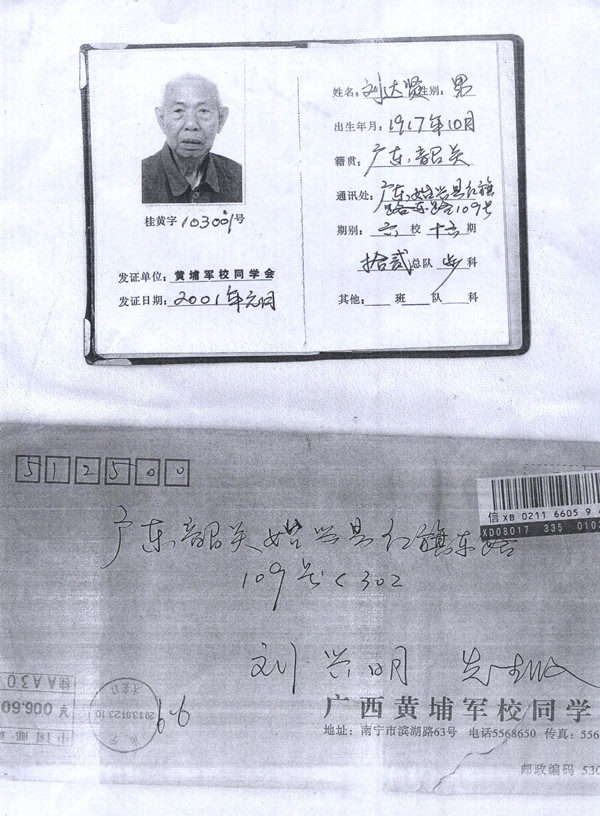 桂黄字103001号
发证单位：黄埔军校同学会
发证日期：2001年元月
姓名：刘达贤性别：男
出生年月：1917年10月
籍贯：广东韶关
通讯处：广东始兴县红旗
路东路109号
期别：六校十六期
拾贰总队步科
其他：班队科
512500
信 XB 0211 6605 9
XD08017 335 0103
广东韶关始兴县红旗东路
109号C302
刘兴明 先生收
桂AA30
¥006.60
中国邮政
2013.01.23.10
广西黄埔军校同学
地址：南宁市滨湖路63号 电话5568650 传真：556
邮政编码 530